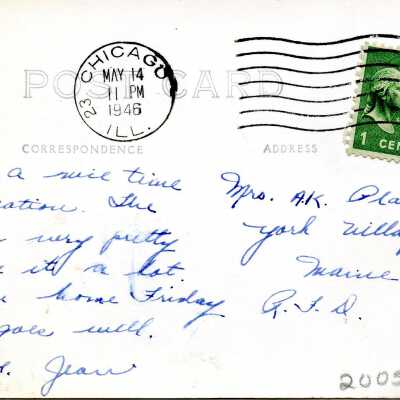 CHICAGO
MAY 14
11 PM
1946
23
ILL.
POST CARD
1 CEN
CORRESPONDENCE
ADDRESS
a nice time
The
very pretty
it a lot.
home Friday
goes well.
Jean
Mrs. A.K.
York
Maine
R.F.D.